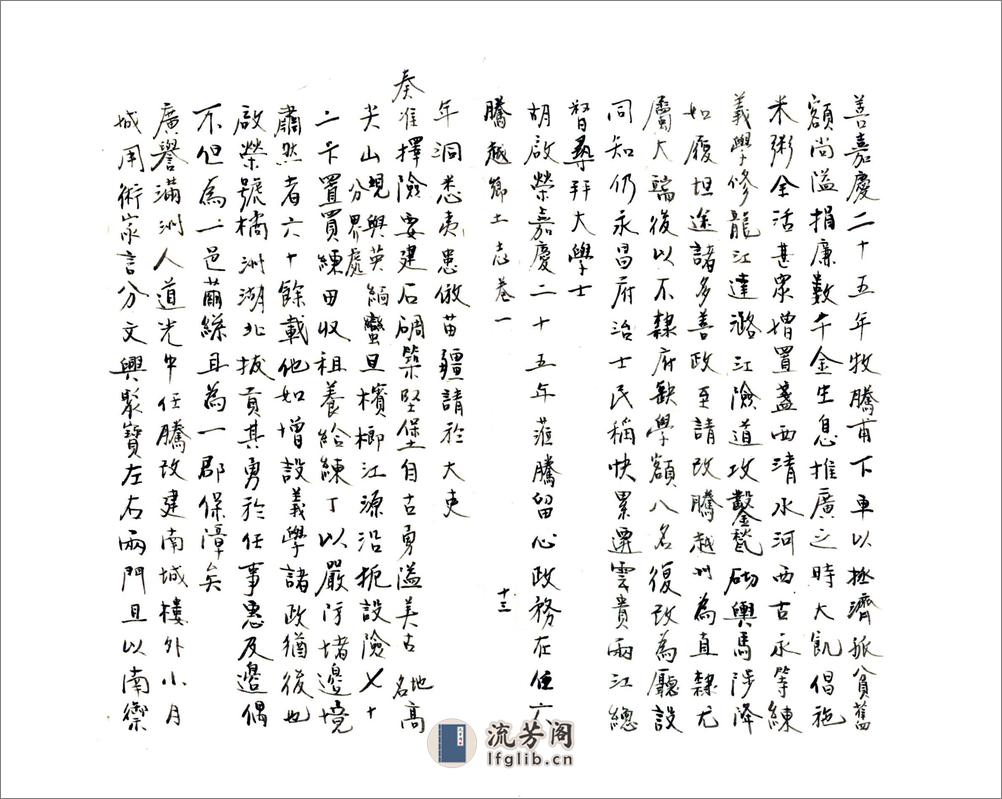 善嘉慶二十五年牧騰甫下車以拯濟孤貧舊
額尚溢捐廉數千金生息推廣之時大飢倡施
米粥全活甚眾增置盞西清水河西古永等練
義學修龍江達潞江險道攻鑿甃砌輿馬涉降
如履坦途諸多善政至請改騰越州為直隸尤
屬大端後以不隸府缺學額八名復改為廳設
同知仍永昌府治士民稱快累遷雲貴兩江總
督尋拜大學士
胡啟榮嘉慶二十五年蒞騰留心政務在任六
騰越鄉土志卷一
十三
年洞悉夷患倣苗疆請於大吏
奏准擇險要建石碉築堡自古勇溢美古地名高
尖山現與英緬分界處蠻旦檳榔江源沿扼設險七十
二卡置買練田收租養給練丁以嚴防堵邊境
肅然者六十餘載他如增設義學諸政猶後也
啟榮號橘洲湖北拔貢其勇於任事惠及邊隅
不但為一邑繭絲且為一郡保障矣
廣譽滿洲人道光中任騰改建南城樓外小月
城用術家言分文興聚寶左右兩門且以南禦
流芳阁
lfglib.cn